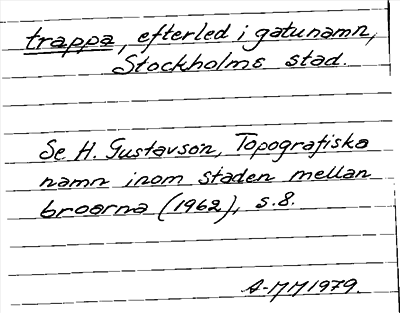 trappa, efterled i gatunamn,
Stockholms stad.
Se H. Gustavson, Topografiska
namn inom staden mellan
broarna (1962), s. 8.
A-MM 1979.